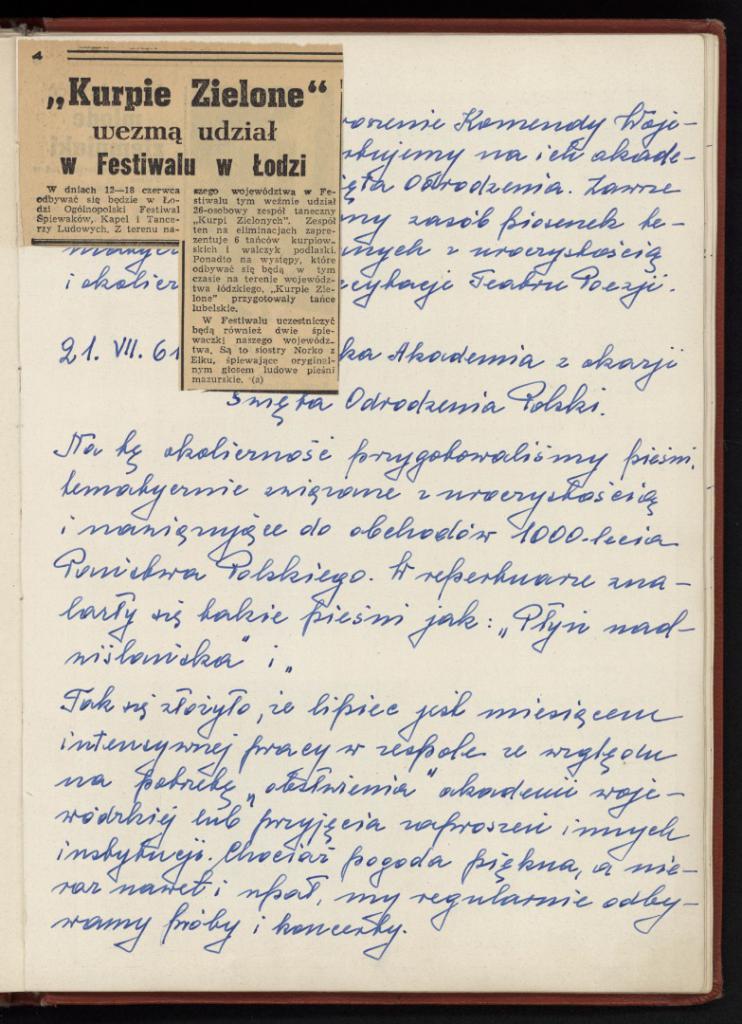 4
„Kurpie Zielone“
wezmą udział
w Festiwalu w Łodzi
W dniach 12—18 czerwca
odbywać się będzie w Ło-
dzi Ogólnopolski Festiwal
Śpiewaków, Kapel i Tance-
rzy Ludowych. Z terenu na-
szego województwa w Fe-
stiwalu tym weźmie udział
26-osobowy zespół taneczny
„Kurpi Zielonych". Zespół
ten na eliminacjach zapre-
zentuje 6 tańców kurpiow-
skich i walczyk podlaski.
Ponadto na występy, które
odbywać się będą w tym
czasie na terenie wojewódz-
twa łódzkiego, „Kurpie Zie-
lone" przygotowały tańce
lubelskie.
W Festiwalu uczestniczyć
będą również dwie śpie-
waczki naszego wojewódz-
twa. Są to siostry Norko z
Ełku, śpiewające oryginal-
nym głosem ludowe pieśni
mazurskie. (a)
roszenie Komendy Woje-
na ich akade-
Odrodzenia. Zawsze
my zasób piosenek te-
z uroczystością
i okolicz Teatru Poezji.
21. VII. 61 ka Akademia z okazji
Święta Odrodzenia Polski.
Na tę okoliczność przygotowaliśmy pieśni,
tematycznie związane z uroczystością
i nawiązujące do obchodów 1000-lecia
Państwa Polskiego. W repertuarze zna-
lazły się takie pieśni jak: „Płyń nad-
wiślańska" i „
Tak się złożyło, że lipiec jest miesiącem
intensywnej pracy w zespole ze względu
na potrzebę „obsłużenia" akademii woje-
wódzkiej lub przyjęcia zaproszeń innych
instytucji. Chociaż pogoda piękna, a nie-
raz nawet i upał, my regularnie odby-
wamy próby i koncerty.